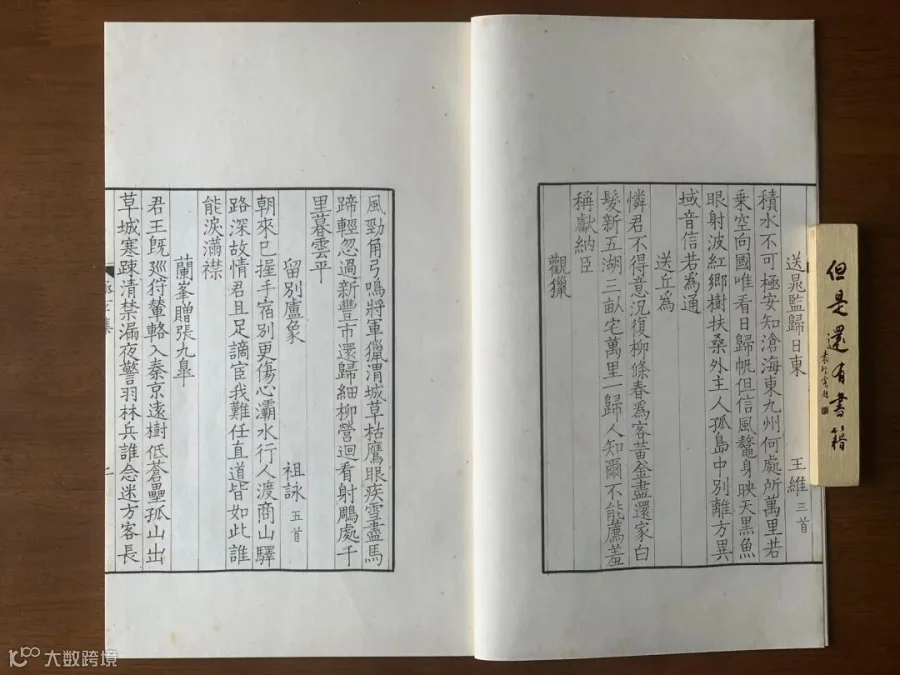 送晁監歸日東 王維 三首
積水不可極安知滄海東九州何處所萬里若
乘空向國唯看日歸帆但信風鼇身映天黑魚
眼射波紅鄉樹扶桑外主人孤島中別離方異
域音信若為通
送丘為
憐君不得意況復柳條春為客黃金盡還家白
髮新五湖三畝宅萬里一歸人知爾不能薦羞
稱獻納臣
觀獵
風勁角弓鳴將軍獵渭城草枯鷹眼疾雪盡馬
蹄輕忽過新豐市還歸細柳營迴看射鵰處千
里暮雲平
留別盧象 祖詠 五首
朝來已握手宿別更傷心灞水行人渡商山驛
路深故情君且足謫宦我難任直道皆如此誰
能淚滿襟
蘭峯贈張九皋
君王既巡狩輦輅入秦京遠樹低蒼壘孤山出
草城寒疎清禁漏夜警羽林兵誰念迷方客長
二
但是還有書籍
大数跨境